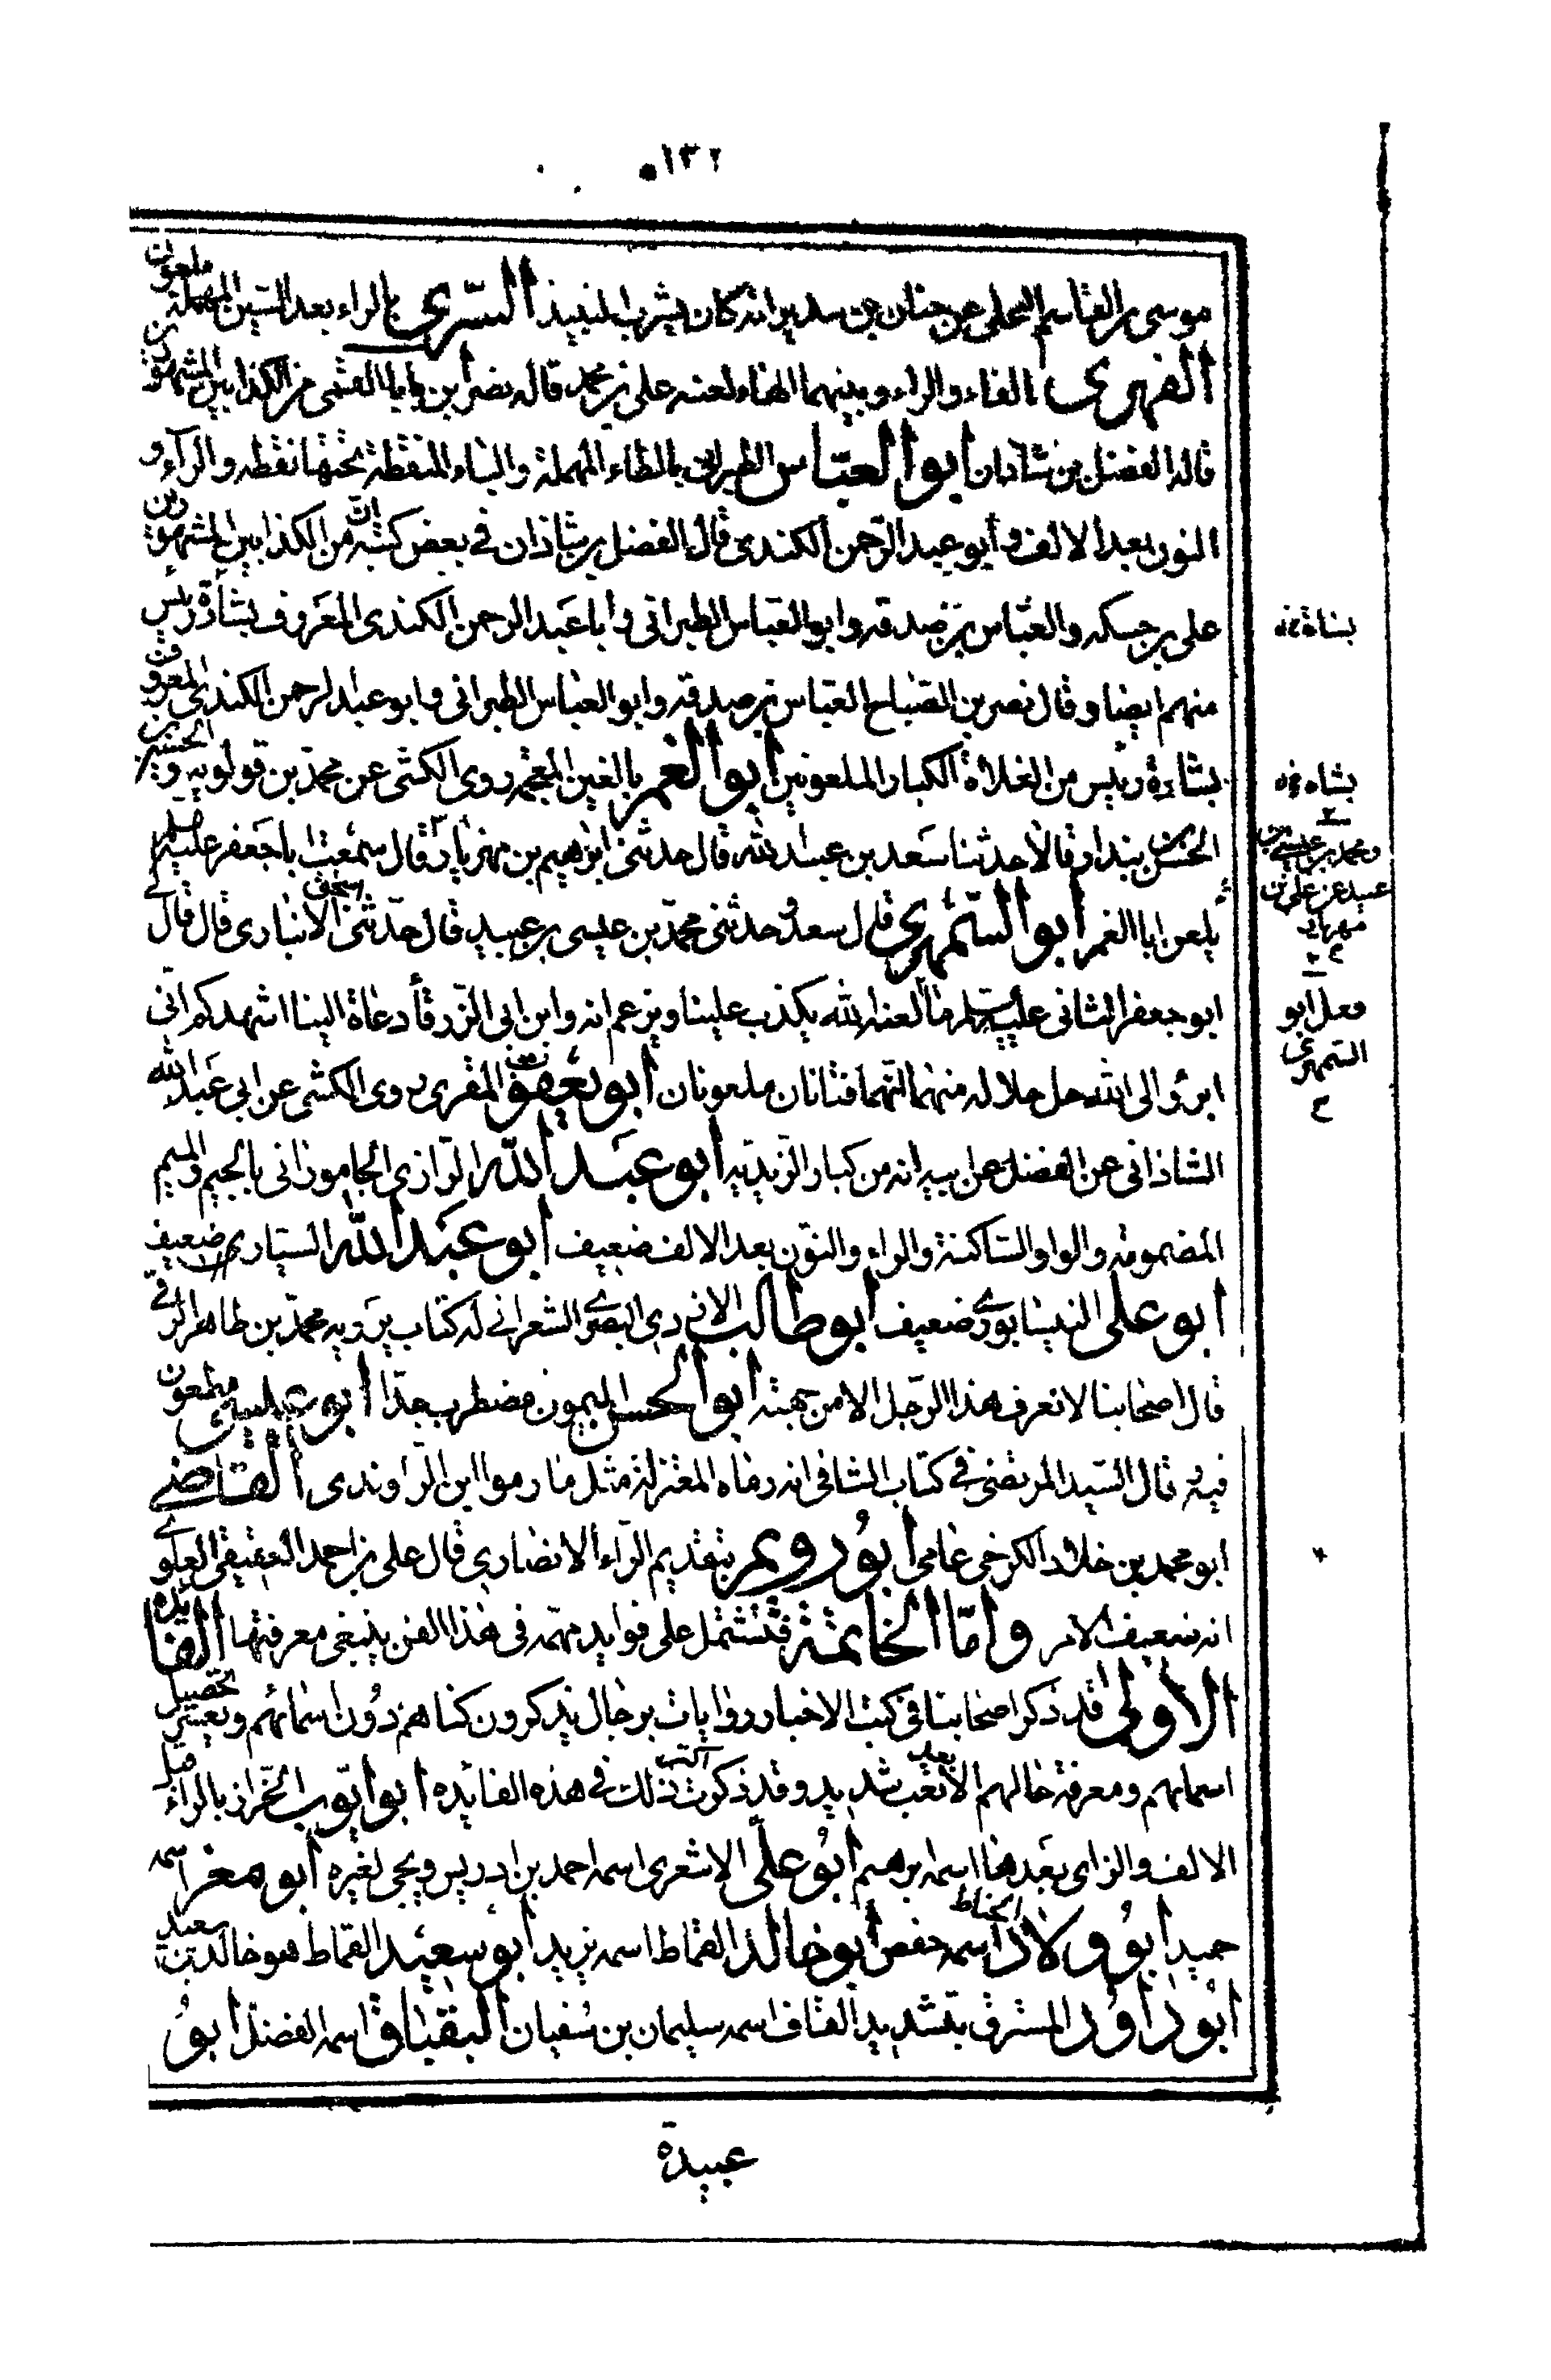 ١٣٢
موسى بن القاسم البجلي عن حنان بن سدير انه كان يشرب النبيذ السّري بالراء بعد السين المهملة ملعون
الفهري بالفاء والراء وبينهما الهاء لعنه علي بن محمد قاله نصر ابن بابا القمى من الكذابين المشهورين
قاله الفضل بن شاذان ابو العبّاس الطبراني بالطاء المهملة والباء المنقطة تحتها نقطه والراء و
النون بعد الالف وأبو عبد الرّحمن الكندي قال الفضل بن شاذان في بعض كتبه انّه من الكذابين المشهورين
علي بن حسكه والعبّاس بن صدقه وابو العبّاس الطبراني وأبا عبد الرحمن الكندي المعروف بشاة رئيس
منهم ايضا وقال نصر بن الصّباح العبّاس بن صدقه وابو العباس الطبراني وابو عبد الرحمن الكندي المعروف
بشاة رئيس من الغلاة الكبار الملعونين ابو الغمر بالغين المعجمه روى الكشى عن محمد بن قولويه والحسين بن
الحسن بن بندار قالا حدثنا سعد بن عبد الله قال حدثني ابرهيم بن مهزيار قال سمعت ابا جعفر عليه السلم
يلعن ابا الغمر أبو السّمهري قال سعد وحدثني محمّد بن عيسى بن عبيد قال حدّثني اسحق الانباري قال قال لي
ابو جعفر الثاني عليه السلم ما لعنه الله يكذب علينا ويزعم انه وابن ابي الزّرقأ دعاة الينا اشهدكم انّي
ابرؤ الى الله جل جلاله منهما انّهما فتانان ملعونان أبو يعقوب المقري روى الكشى عن ابي عبد الله
الشاذاني عن الفضل عن ابيه انه من كبار الزّيديّه أبو عبد الله الرّازي الجاموراني بالجيم والميم
المضمومه والواو الساكنة والراء والنون بعد الالف ضعيف أبو عبد الله السيّاري ضعيف
أبو علي النيسابوري ضعيف أبو طالب الازدي البصري الشعراني له كتاب يرويه محمّد بن طاهر الرّقي
قال اصحابنا لا نعرف هذا الرّجل الا من جهته أبو الحسن الميمون مضطرب جدّا أبو عيسى مطعون
فيه قال السّيد المرتضى في كتاب الشافي انه رماه المعتزلة مثل ما رموا ابن الرّاوندي القاضي
ابو محمد بن خلاد الكرخي عامي أبو رويم بتقديم الرّاء الانصاري قال علي بن احمد العقيقي العلوي
انه ضعيف الامر وامّا الخاتمة فتشتمل على فوايد مهمّه في هذا الفن ينبغي معرفتها الفايده
الأولى قد ذكر اصحابنا في كتب الاخبار روايات برجال يذكرون كناهم دون اسمائهم ويعسر تحصيل
اسمائهم ومعرفة حالهم الا بعد تعب شديد وقد ذكرت اكثر ذلك في هذه الفائده أبو ايّوب الخرّاز بالراء قبل
الالف والزاي بعدها اسمه ابرهيم أبو علّي الاشعري اسمه احمد بن ادريس ويجي لغيره أبو مغرا اسمه
حميد أبو ولاد الحناط اسمه حفص أبو خالد القماط اسمه يزيد أبو سعيد القماط هو خالد بن سعيد
أبو داود المسترق بتشديد القاف اسمه سليمان بن سفيان البقباق اسمه الفضل أبو
عبيدة
ومحمد بن عيسى بن
عبيد عن علي بن
مهزيار
فعل ابو
السمهري